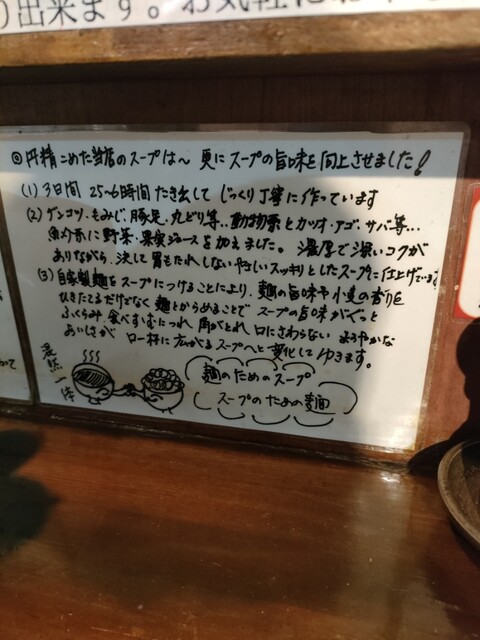 出来ます。お気軽にお
◎丹精こめた当店のスープは〜 更にスープの旨味を向上させました!
(1) 3日間 25〜6時間 たき出して じっくり丁寧に作っています
(2) ゲンコツ・もみじ・豚足・丸どり等..動物系とカツオ・アゴ・サバ等...
魚介系に野菜・果実ジュースを加えました。 濃厚で深いコクが
ありながら、決して胃もたれしないやさしいスッキリとしたスープに仕上げています
(3) 自家製麺をスープにつけることにより、麺の旨味や小麦の香りを
ひきたてるだけでなく 麺とからめることで スープの旨味がぐっと
ふくらみ 食べすすむにつれ 角がとれ 口にさわらない まろやかな
あいしさが 口一杯に広がるスープへと 変化してゆきます。
渾然一体
麺のためのスープ
スープのための麺